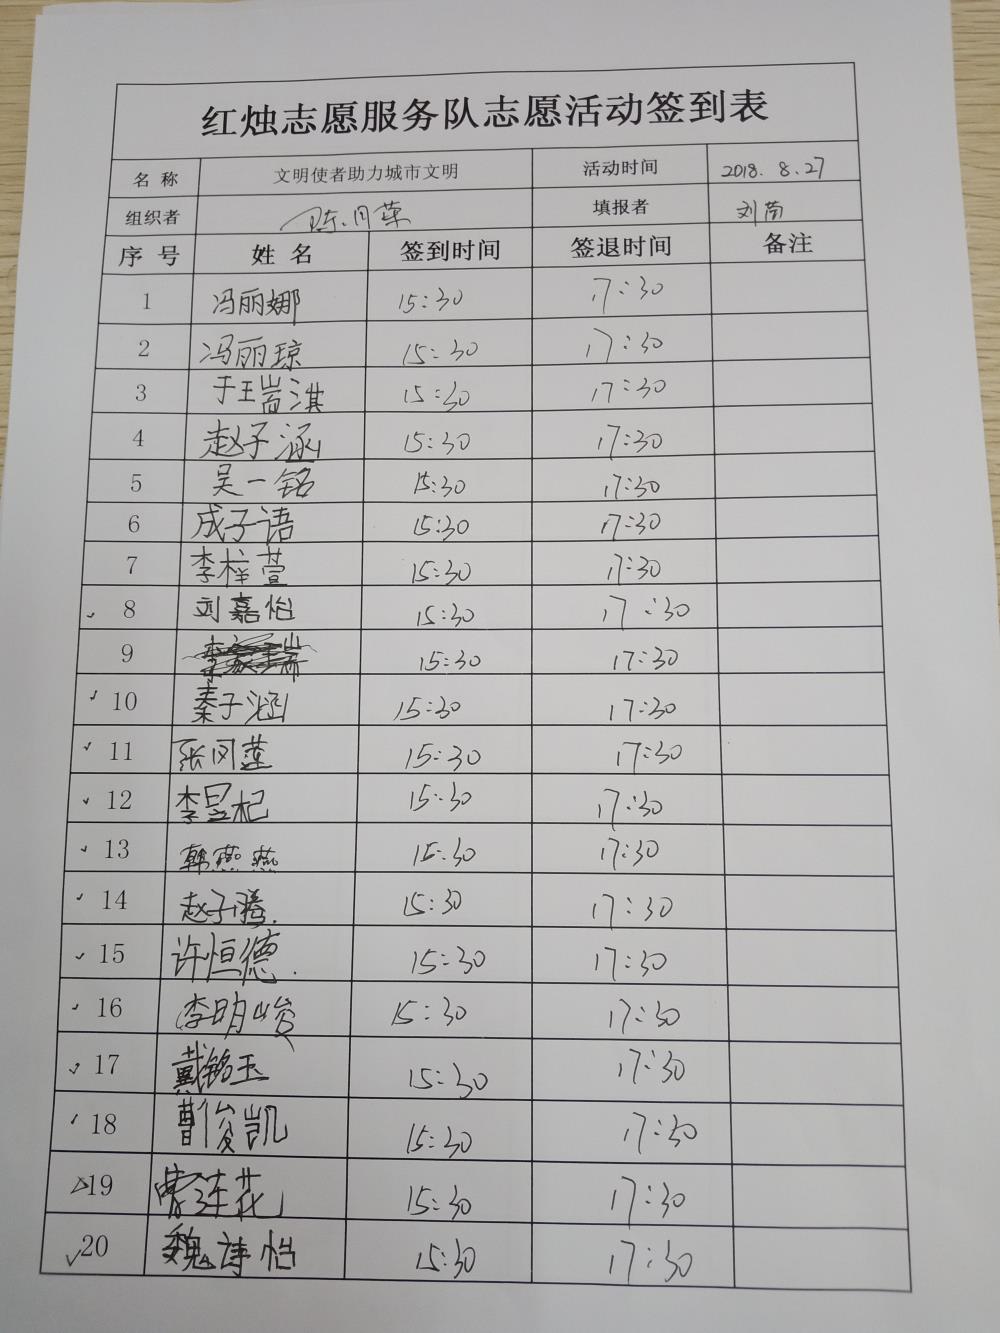 红烛志愿服务队志愿活动签到表
名 称 文明使者助力城市文明 活动时间 2018. 8. 27
组织者 陈月荣 填报者 刘茼
序 号 姓 名 签到时间 签退时间 备注
1 冯丽娜 15:30 17:30
2 冯丽琼 15:30 17:30
3 于王嵩淇 15:30 17:30
4 赵子涵 15:30 17:30
5 吴一铭 15:30 17:30
6 成子语 15:30 17:30
7 李梓萱 15:30 17:30
8 刘嘉怡 15:30 17:30
9 15:30 17:30
10 秦子涵 15:30 17:30
11 张凤莲 15:30 17:30
12 李昱杞 15:30 17:30
13 韩燕燕 15:30 17:30
14 赵子腾. 15:30 17:30
15 许恒德. 15:30 17:30
16 李明峻 15:30 17:30
17 戴铭玉 15:30 17:30
18 曹俊凯 15:30 17:30
19 连花 15:30 17:30
20 魏诗怡 15:30 17:30